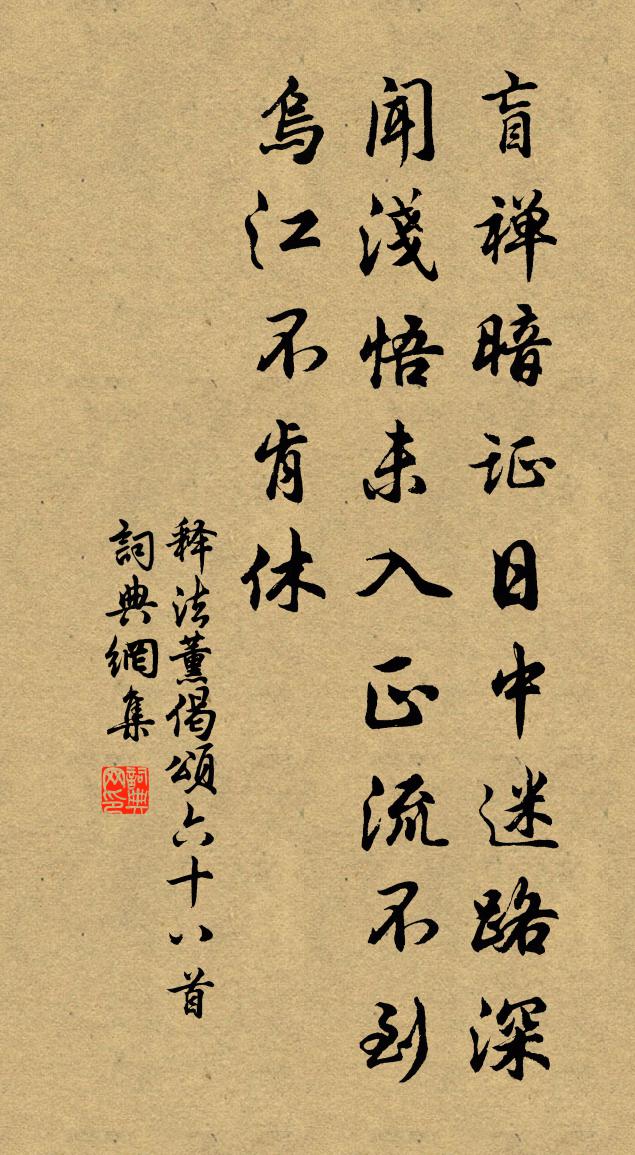 盲禅暗证日中迷路深
闻淺悟未入正流不到
烏江不肯休
释法薰偈頌六十八首
詞典網集
詞典网印